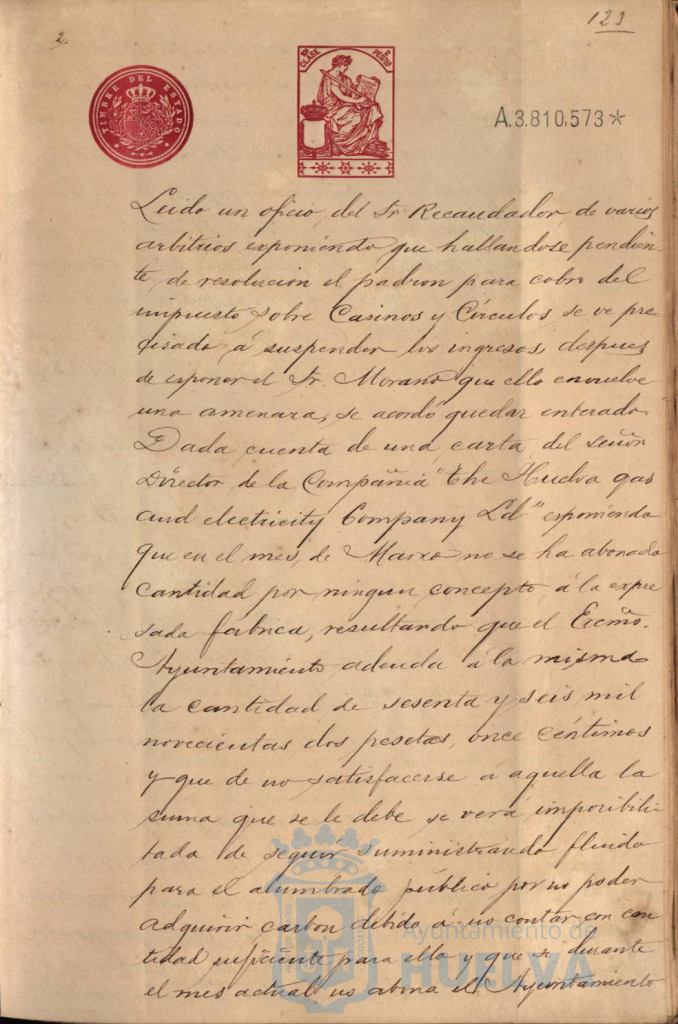 2
123
TIMBRE DEL ESTADO
10ª CLASE
2 PESETAS
A.3.810,573*
Leido un oficio del Sr Recaudador de varios
arbitrios exponiendo que hallandose pendien-
te de resolucion el padron para cobro del
impuesto sobre Casinos y Círculos se ve pre
cisado á suspender los ingresos, despues
de exponer el Sr. Morano que ello envuelve
una amenaza, se acordó quedar enterado.
Dada cuenta de una carta del señor
Director de la Compañia "The Huelva gas
and electricity Company Ld" exponiendo
que en el mes de Marzo no se ha abonado
cantidad por ningun concepto á la expre
sada fábrica, resultando que el Excmo.
Ayuntamiento adeuda á la misma
la cantidad de sesenta y seis mil
novecientas dos pesetas, once céntimos
y que de no satisfacerse á aquella la
suma que se le debe se verá imposibili
tada de seguir suministrando fluido
para el alumbrado público por no poder
adquirir carbon debido á no contar con can
tidad suficiente para ello y que si durante
el mes actual no abona el Ayuntamiento
Ayuntamiento de
HUELVA